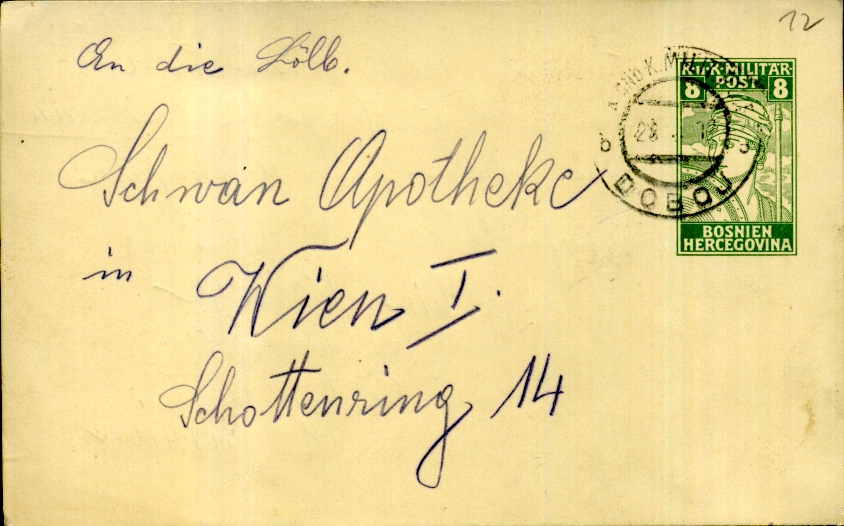 12
An die Löbl.
Schwan Apotheke
in
Wien I.
Schottenring 14
K.u.K. MILITÄR
8 POST 8
BOSNIEN
HERCEGOVINA
K.UND K. MILIT
28
8
DOBOJ